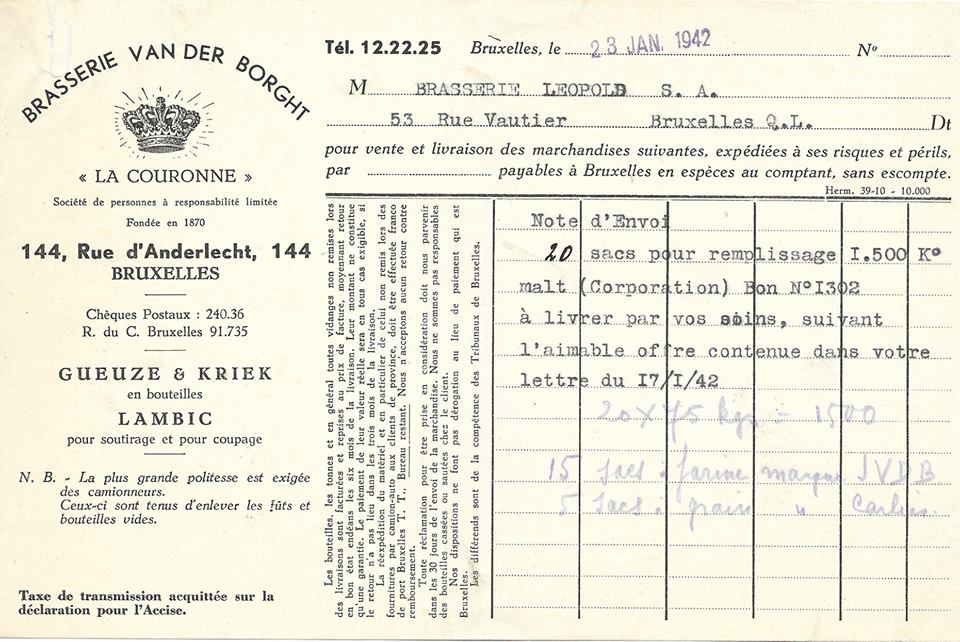 BRASSERIE VAN DER BORGHT
« LA COURONNE »
Société de personnes à responsabilité limitée
Fondée en 1870
144, Rue d'Anderlecht, 144
BRUXELLES
Chèques Postaux : 240.36
R. du C. Bruxelles 91.735
GUEUZE & KRIEK
en bouteilles
LAMBIC
pour soutirage et pour coupage
N. B. - La plus grande politesse est exigée
des camionneurs.
Ceux-ci sont tenus d'enlever les fûts et
bouteilles vides.
Taxe de transmission acquittée sur la
déclaration pour l'Accise.
Tél. 12.22.25 Bruxelles, le 23 JAN. 1942 No
M BRASSERIE LEOPOLD S. A.
53 Rue Vautier Bruxelles Q.L. Dt
pour vente et livraison des marchandises suivantes, expédiées à ses risques et périls,
par payables à Bruxelles en espèces au comptant, sans escompte.
Herm. 39-10 - 10.000
Les bouteilles, les tonnes et en général toutes vidanges non remises lors
des livraisons sont facturées et reprises au prix de facture, moyennant retour
en bon état endéans les six mois de la livraison. Leur montant ne constitue
qu'une garantie. Le paiement de leur valeur réelle sera en tous cas exigible, si
le retour n'a pas lieu dans les trois mois de la livraison.
La réexpédition du matériel et en particulier de celui non remis lors des
fournitures par camion-auto aux clients de province, doit être effectuée franco
de port Bruxelles T. T., Bureau restant. Nous n'acceptons aucun retour contre
remboursement.
Toute réclamation pour être prise en considération doit nous parvenir
dans les 30 jours de l'envoi de la marchandise. Nous ne sommes pas responsables
des bouteilles cassées ou sautées chez le client.
Nos dispositions ne font pas dérogation au lieu de paiement qui est
Bruxelles.
Les différends sont de la compétence des Tribunaux de Bruxelles.
Note d'Envoi
20 sacs pour remplissage I.500 K°
malt (Corporation) Bon N°I302
à livrer par vos soins, suivant
l'aimable offre contenue dans votre
lettre du I7/I/42
20 x 75 kgs = 1500
15 sacs farine marque JVDB
5 sacs grain "